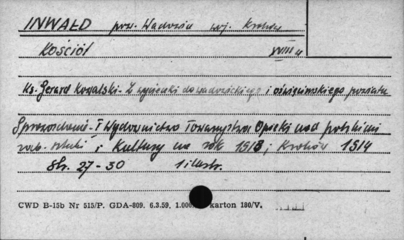 INWAŁD pow. Wadowice woj. Kraków
Kościół XVIII w
Ks. Gerard Kowalski - Z wycieczki do wadowickiego i oświęcimskiego powiatu
Sprawozdanie - i Wydawnictwo Towarzystwa Opieki nad polskimi
zab. sztuki i Kultury za rok 1913; Kraków 1914
Str. 27-30 1 ilustr.
CWD B-15b Nr 515/P. GDA-809. 6.3.59. 1.000 karton 180/V.